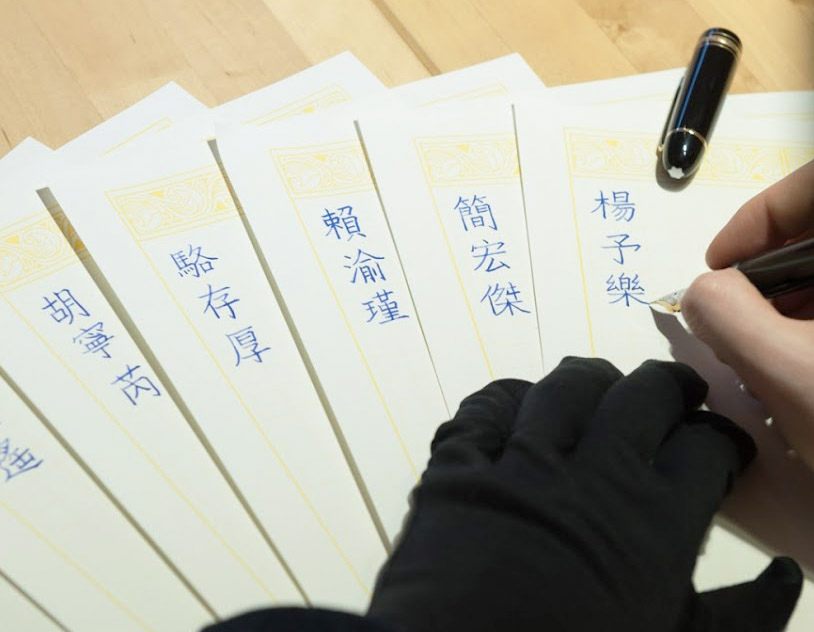 楊予樂
簡宏傑
賴渝瑾
駱存厚
胡寧芮